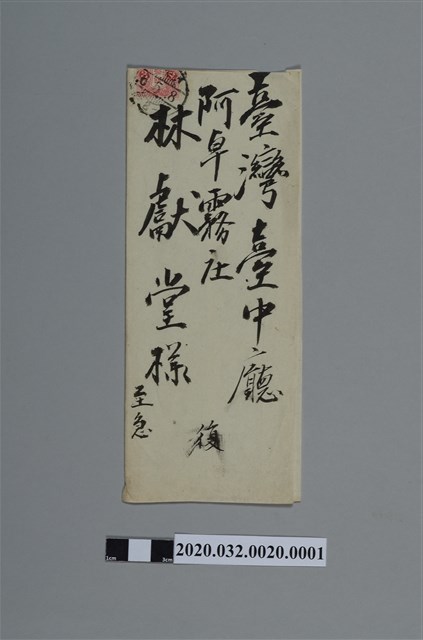 臺灣臺中廳
阿卓霧庄
林獻堂樣
至急
復
1cm
3cm
2020.032.0020.0001